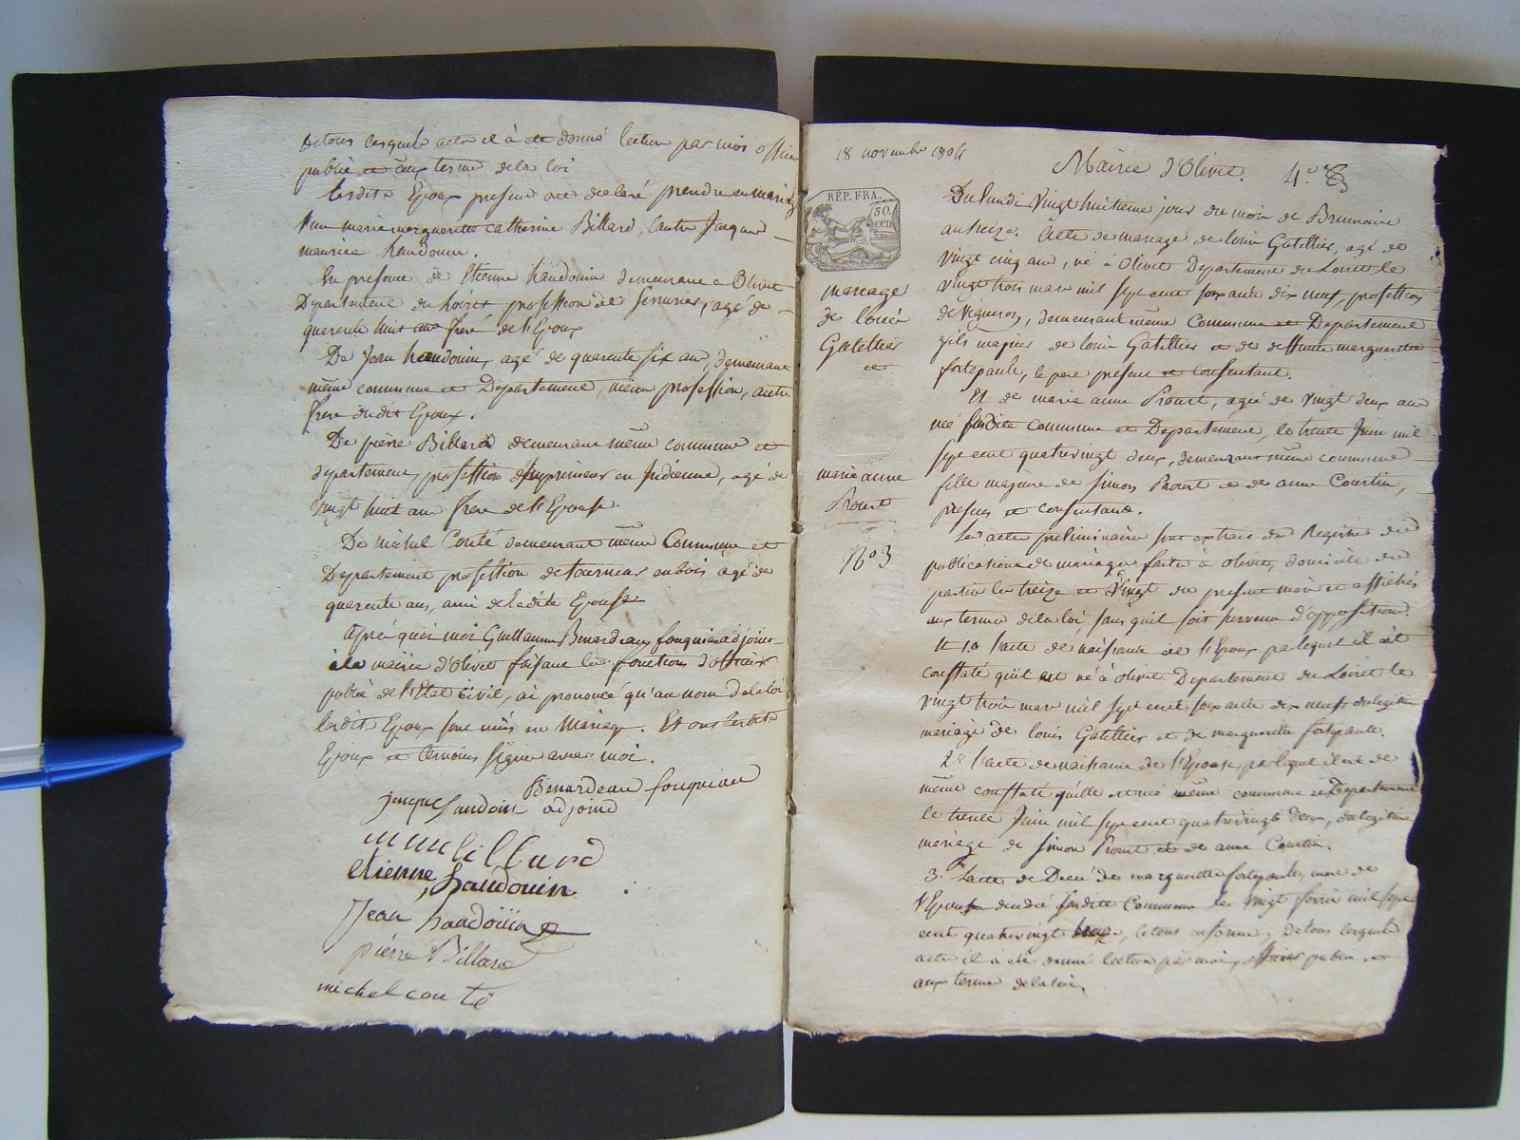 de tous lesquels actes il à été donné lecture par moi officier
public et aux terme de la loi
Lesdits Epoux present ont declaré prendre en mariage
l'une marie marguerite catherine Billard, l'autre Jacques
maurice handouin.
En presence de Etienne handouin demeurant a Olivet
Departement du Loiret profession de serrurier, agé de
quarente huit ans frere de l'Epoux
De Jean handouin, agé de quarente six ans, demeurant
même commune et Departement, même profession, autre
frere dudit Epoux.
De pierre Billard demeurant même commune et
departement, profession d'Imprimeur en Indienne, agé de
vingt huit ans frere de l'Epouse
De michel Conté demeurant même Commune et
Departement profession de tourneur en bois agé de
quarente ans, ami de ladite Epouse
après quoi moi Guillaume Benardeau fouquiau adjoint
à la mairie d'Olivet faisant les fonctions d'officier
public de l'Etat Civil, ai prononcé qu'au nom de la loi
lesdits Epoux sont unis en Mariage. Et ont lesdits
Epoux et temoins signé avec moi.
Benardeau fouquiau
jacque handouin adjoind
m m c billard
etienne handouin
Jean handouin
pierre Billard
michel conté
18 novembre 1804
Mairie d'Olivet.
REP. FRA.
50
CEN
mariage
de louis
Gatellier
et
marie anne
Prout
No 3
Du Lundi Vingt huitieme jour du mois de Brumaire
an treize. Acte de mariage de louis Gatellier, agé de
vingt cinq ans, né à Olivet Departement du Loiret le
vingt trois mars mil sept cent soixante dix neuf, profession
de vigneron, demeurant même Commune et Departement
fils majeur de louis Gatellier et de deffunte marguerite
fortepaulte, le pere present et consentant.
Et de marie anne Prout, agée de vingt deux ans
née susdite commune et Departement, le trente Juin mil
sept cent quatrevingt deux, demeurant même commune
fille majeure de Simon Prout et de anne Courtin,
presens et consentans.
Les actes preliminaires sont extrait du Registre des
publications de mariages faites à Olivet, domicile des
parties les treize et vingt du present mois et affichés
aux termes de la loi sans qu'il soit survenu d'opposition.
1o l'acte de naissance de l'Epoux par lequel il est
constaté qu'il est né à Olivet Departement du Loiret le
vingt trois mars mil sept cent soixante dix neuf du legitime
mariage de louis Gatellier et de marguerite fortepaulte.
2o l'acte de naissance de l'Epouse par lequel il est de
même constaté qu'elle est née même commune et Departement
le trente Juin mil sept cent quatrevingt deux, du legitime
mariage de Simon Prout et de anne Courtin.
3o l'acte de Decès de marguerite fortepaulte, mere de
l'Epoux dudit susdite Commune le vingt fevrier mil sept
cent quatrevingt, le tous en forme, de tous lesquels
actes il à été donné lecture par moi, officier public
aux terme de la loi,